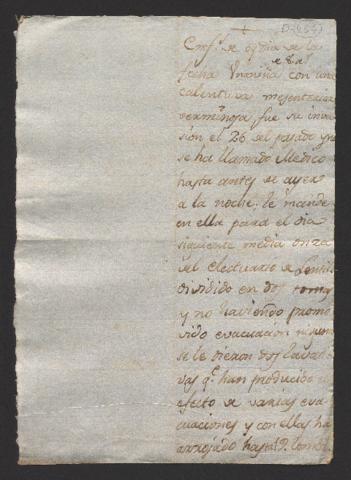 +
Conf.e de oy dia de la
fecha Una niña con una
calentura mesenterica
verminosa, fue su inva
sion el 26 del pasado y no
se ha llamado Medico
hasta antes de ayer
a la noche: le mande
en ella para el dia
siguiente media onza
del electuario de
dividido en dos tomas
y no haviendo promo
vido evacuacion ninguna
se le dieron dos lavati
vas q.e han producido el
efecto de varias eva
cuaciones y con ellas ha
arrojado hasta 9 lombri